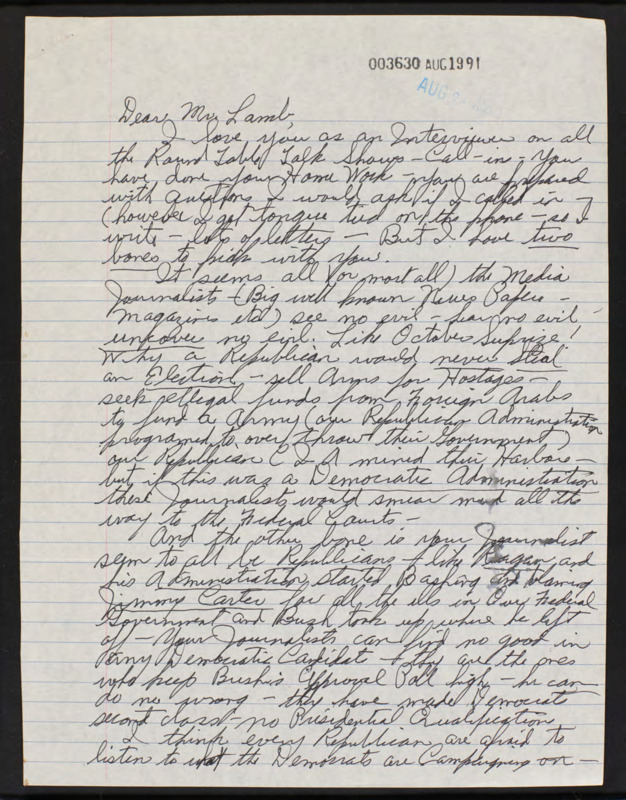 003630 AUG 1991
AUG
Dear Mr. Lamb,
I love you as an Interviewer on all
the Round Table Talk Shows - Call-in - You
have done your Home Work - you are prepared
with questions I would ask if I called in -
(however I get tongue tied on the phone - so I
write - lots of letters - But I have two
bones to pick with you.
It seems all (or most all) the Media
Journalists - (Big well known News Papers -
magazines etc) see no evil - hear no evil -
uncover no evil. Like October Suprize,
Why a Republican would never Steal
an Election - sell Arms for Hostages -
seek illegal funds from Foreign Arabs
to fund a Army (our Republican Administration
programed to over throw their Government)
our Republican C I A mined their Harbors -
but if this was a Democratic Administration
these Journalists would smear mud all the
way to the Federal Courts -
And the other bone is your Journalist
seem to all be Republicans & like Reagan and
his Administration started Bashing and blaming
Jimmy Carter for all the ills in Our Federal
Government and Bush took up where he left
off - Your Journalists can find no good in
any Democratic Candidate & they are the ones
who keep Bush's Approval Poll high - he can
do no wrong - they have made Democrats
second class - no Presidential Qualification
I think every Republican are afraid to
listen to what the Democrats are Campaigning on -